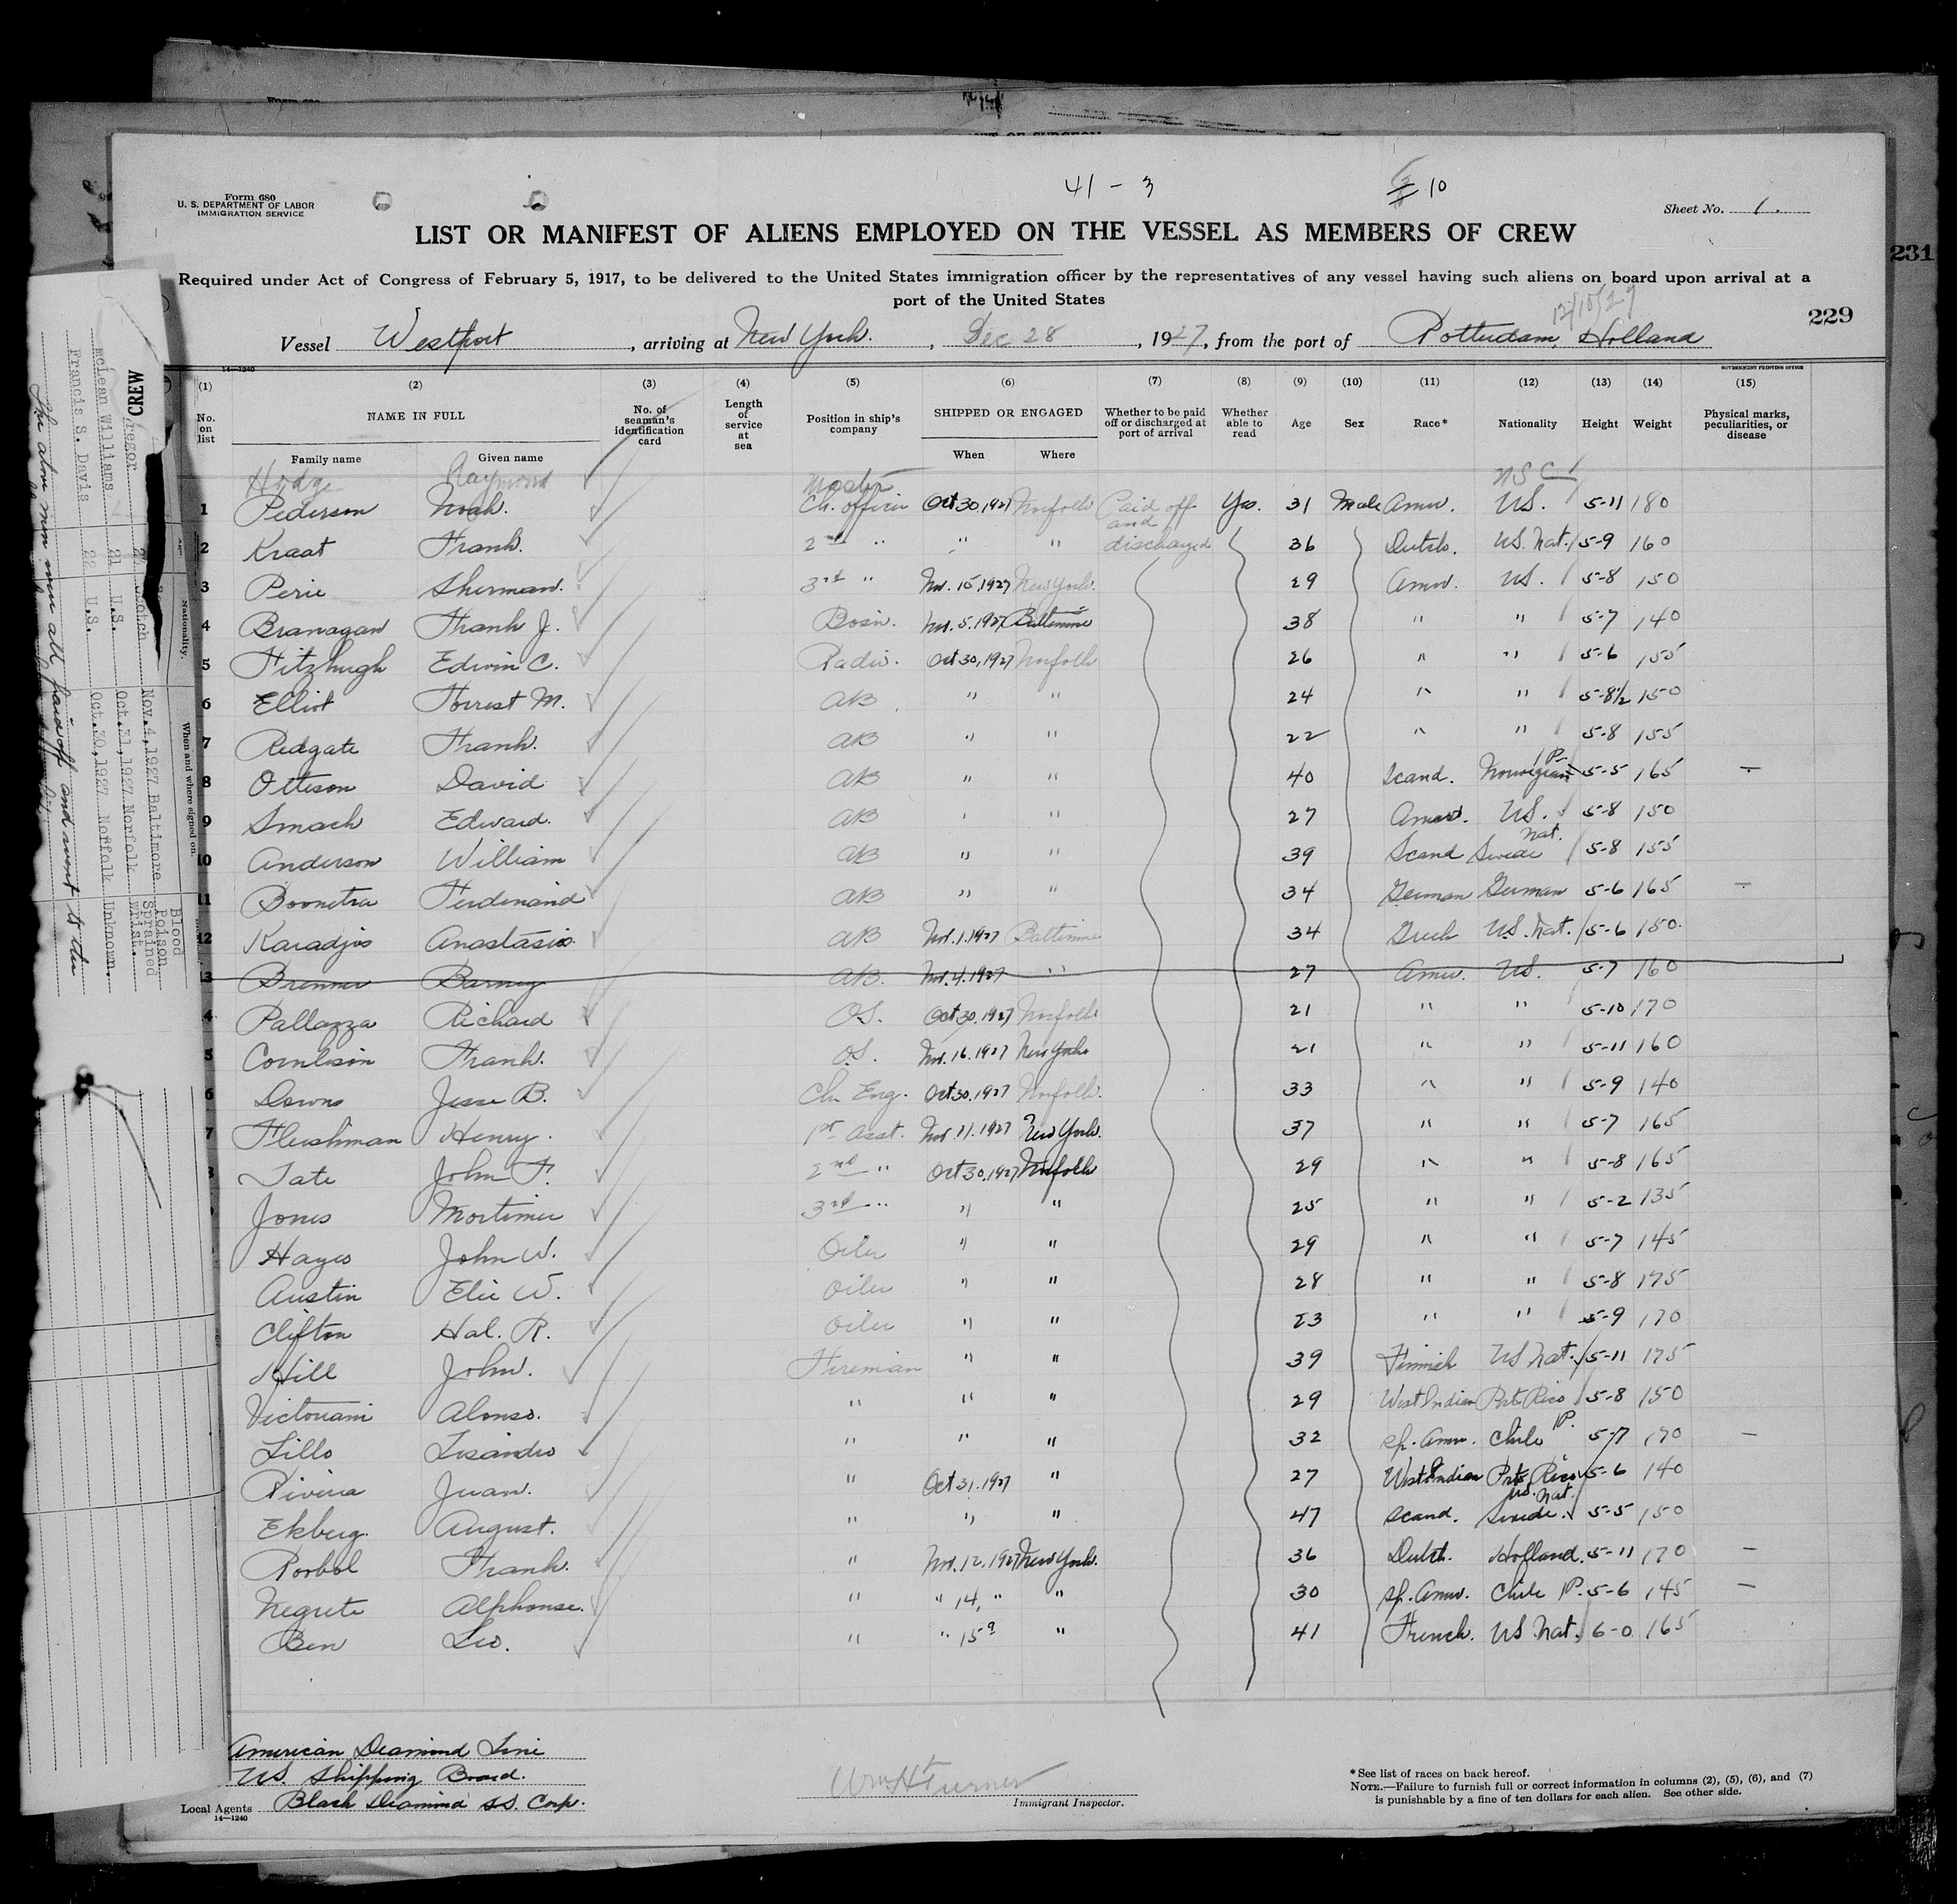 41 - 3
10
Form 680
U. S. DEPARTMENT OF LABOR
IMMIGRATION SERVICE
Sheet No. 1.
LIST OR MANIFEST OF ALIENS EMPLOYED ON THE VESSEL AS MEMBERS OF CREW
231
Required under Act of Congress of February 5, 1917, to be delivered to the United States immigration officer by the representatives of any vessel having such aliens on board upon arrival at a
port of the United States
229
Vessel Westport, arriving at New York., Dec 28, 1927, from the port of Rotterdam, Holland
14—1240
GOVERNMENT PRINTING OFFICE
(1) (2) (3) (4) (5) (6) (7) (8) (9) (10) (11) (12) (13) (14) (15)
No. on list NAME IN FULL No. of seaman's identification card Length of service at sea Position in ship's company SHIPPED OR ENGAGED Whether to be paid off or discharged at port of arrival Whether able to read Age Sex Race* Nationality Height Weight Physical marks, peculiarities, or disease
Family name Given name When Where
Hodge Raymond Master
1 Pederson Noah. Ch. officer Oct 30, 1927 Norfolk Paid off and Yes. 31 Male Amer. US. 5-11 180
2 Kraat Frank. 2nd " " " discharged 36 Dutch. US. Nat. 5-9 160
3 Perie Sherman. 3rd " Nov. 15, 1927 New York. 29 Amer. US. 5-8 150
4 Branagan Frank J. Bosn. Nov. 5. 1927 Baltimore 38 " " 5-7 140
5 Fitzhugh Edwin C. Radio. Oct 30, 1927 Norfolk 26 " " 5-6 155
6 Elliot Forrest M. AB " " 24 " " 5-8½ 150
7 Redgate Frank. AB " " 22 " " 5-8 155
8 Otteson David AB " " 40 Scand. Norwegian 5-5 165 —
9 Smach Edward. AB " " 27 Amer. US. 5-8 150
10 Anderson William AB " " 39 Scand Swede nat. 5-8 155
11 Boonstra Ferdinand AB " " 34 German German 5-6 165 —
12 Karadjis Anastasio. AB Nov. 1. 1927 Baltimore 34 Greek US. Nat. 5-6 150.
13 Brenner Barney AB. Nov. 4. 1927 " 27 Amer. US. 5-7 160
4 Pallazza Richard O.S. Oct 30, 1927 Norfolk 21 " " 5-10 170
5 Cornlison Frank. O.S. Nov. 16. 1927 New York 21 " " 5-11 160
6 Downs Jesse B. Ch. Eng. Oct 30. 1927 Norfolk. 33 " " 5-9 140
7 Fleishman Henry. 1st Asst. Nov. 11. 1927 New York. 37 " " 5-7 165
Tate John F. 2nd " Oct 30, 1927 Norfolk 29 " " 5-8 165
Jones Mortimer 3rd " " " 25 " " 5-2 135
Hayes John W. Oiler " " 29 " " 5-7 145
Austin Elie W. Oiler " " 28 " " 5-8 175
Clifton Hal. R. Oiler " " 23 " " 5-9 170
Hill John. Fireman " " 39 Finnish US Nat. 5-11 175
Victoriani Alonso. " " " 29 West Indian Porto Rico 5-8 150
Lillo Lisandro " " " 32 Sp. Amer. Chile 5-7 170 —
Riviera Juan. " Oct 31. 1927 " 27 West Indian Porto Rico 5-6 140
Ekberg August. " " " 47 Scand. Swede. US. Nat. 5-5 150
Frank. " Nov. 12. 1927 New York. 36 Dutch. Holland. 5-11 170 —
Negrete Alphonse. " " 14, " " 30 Sp. Amer. Chile 5-6 145 —
Ben Leo. " " 15 " 41 French. US Nat. 6-0 165
American Diamond Line
US. Shipping Board.
Local Agents Black Diamond SS. Corp.
14—1240
Wm H Turner
Immigrant Inspector.
*See list of races on back hereof.
NOTE.—Failure to furnish full or correct information in columns (2), (5), (6), and (7)
is punishable by a fine of ten dollars for each alien. See other side.
CREW
Age. Nationality. When and where signed on.
Nov. 4, 1927 Baltimore Blood Poison
mclean Williams 21 U.S. Oct. 31, 1927 Norfolk Sprained wrist.
Francis S. Davis 22 U.S. Oct. 30, 1927 Noffolk Unknown.
The above men were all paid off and went to the